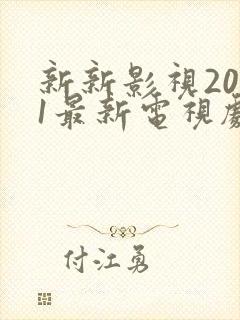 新新影視20
1最新電視劇
付江勇